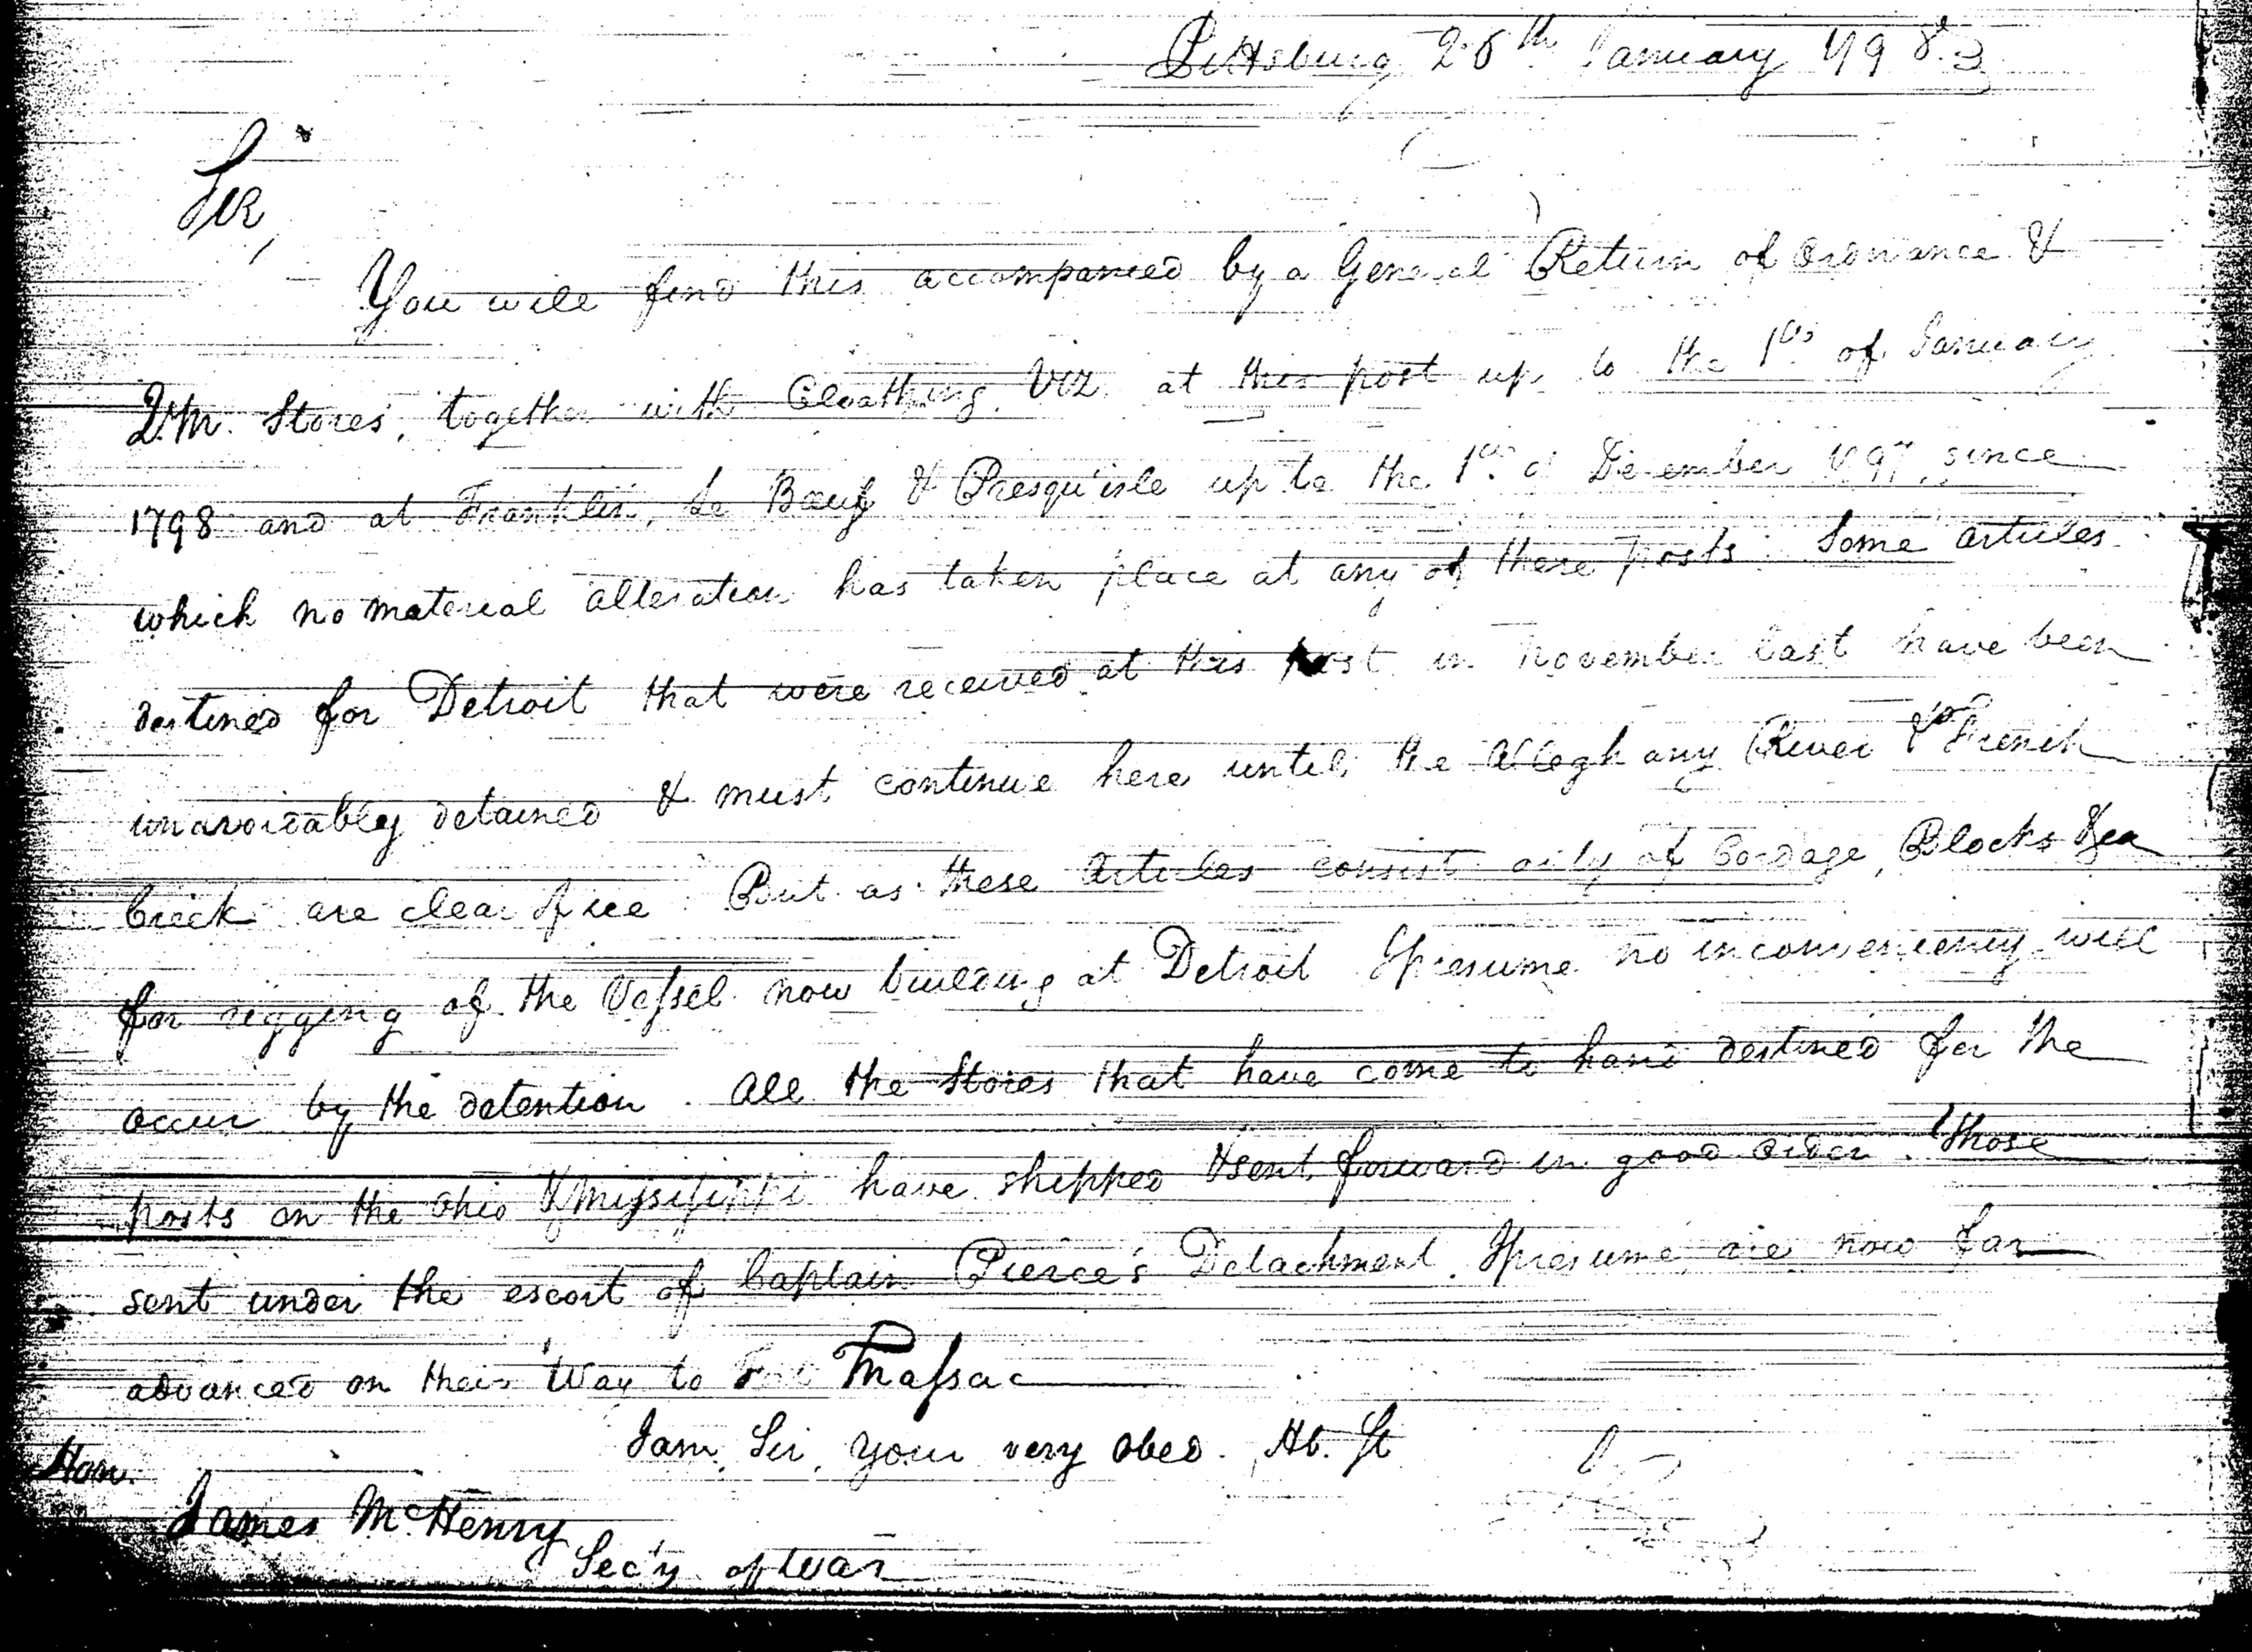 Pittsburg 26th January 1798.
Sir,
You will find this accompanied by a General Return of Ordnance &
Q.M. Stores, together with Cloathing. Viz. at this post up to the 1st of January
1798 and at Franklin, Le Bœuf & Presqu'isle up to the 1st of December 1797, since
which no material alteration has taken place at any of these posts. Some articles
destined for Detroit that were received at this post in November last have been
unavoidably detained & must continue here until the Alleghany River & French
Creek are clear of ice. But as these Articles consist only of Cordage, Blocks &ca
for rigging of the Vessel now building at Detroit I presume no inconveniency will
occur by the detention. All the Stores that have come to hand destined for the
posts on the Ohio & Missisippi have shipped & sent forward in good order. Those
sent under the escort of Captain Pierce's Detachment, I presume, are now far
advanced on their Way to Fort Massac
I am, Sir, your very obed. Hb. St
Hon.
James McHenry
Sec'y of War